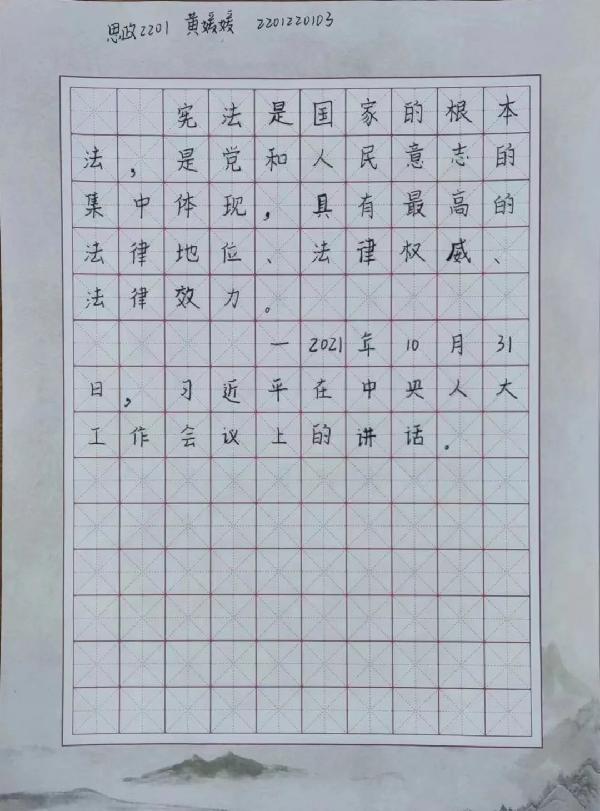 思政2201 黄媛媛 2201220103
宪法是国家的根本
法,是党和人民意志的
集中体现,具有最高的
法律地位、法律权威、
法律效力。
一2021年10月31
日,习近平在中央人大
工作会议上的讲话.